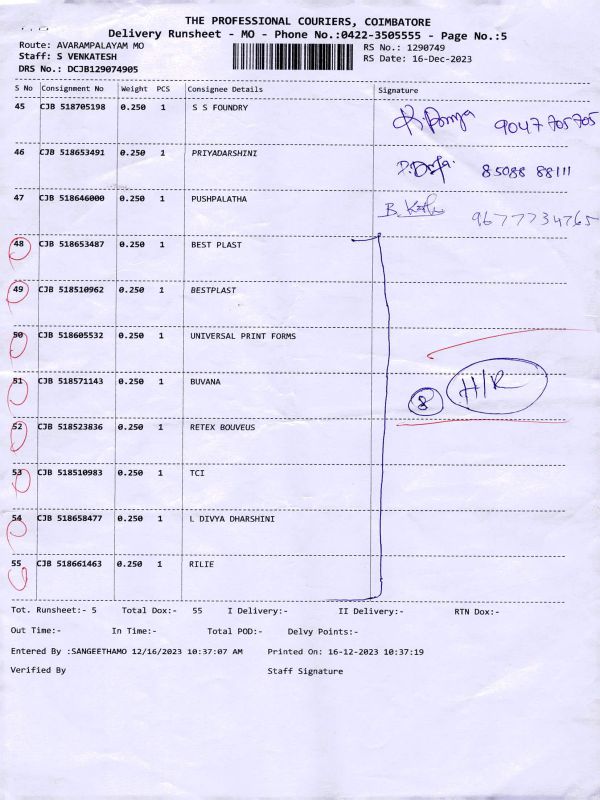 THE PROFESSIONAL COURIERS, COIMBATORE
Delivery Runsheet - MO - Phone No.:0422-3505555 - Page No.:5
Route: AVARAMPALAYAM MO RS No.: 1290749
Staff: S VENKATESH RS Date: 16-Dec-2023
DRS No.: DCJB129074905
S No Consignment No Weight PCS Consignee Details Signature
45 CJB 518705198 0.250 1 S S FOUNDRY 9047705705
46 CJB 518653491 0.250 1 PRIYADARSHINI 85088 88111
47 CJB 518646000 0.250 1 PUSHPALATHA 9677734765
48 CJB 518653487 0.250 1 BEST PLAST
49 CJB 518510962 0.250 1 BESTPLAST
50 CJB 518605532 0.250 1 UNIVERSAL PRINT FORMS
51 CJB 518571143 0.250 1 BUVANA 8 H/R
52 CJB 518523836 0.250 1 RETEX BOUVEUS
53 CJB 518510983 0.250 1 TCI
54 CJB 518658477 0.250 1 L DIVYA DHARSHINI
55 CJB 518661463 0.250 1 RILIE
Tot. Runsheet:- 5 Total Dox:- 55 I Delivery:- II Delivery:- RTN Dox:-
Out Time:- In Time:- Total POD:- Delvy Points:-
Entered By :SANGEETHAMO 12/16/2023 10:37:07 AM Printed On: 16-12-2023 10:37:19
Verified By Staff Signature